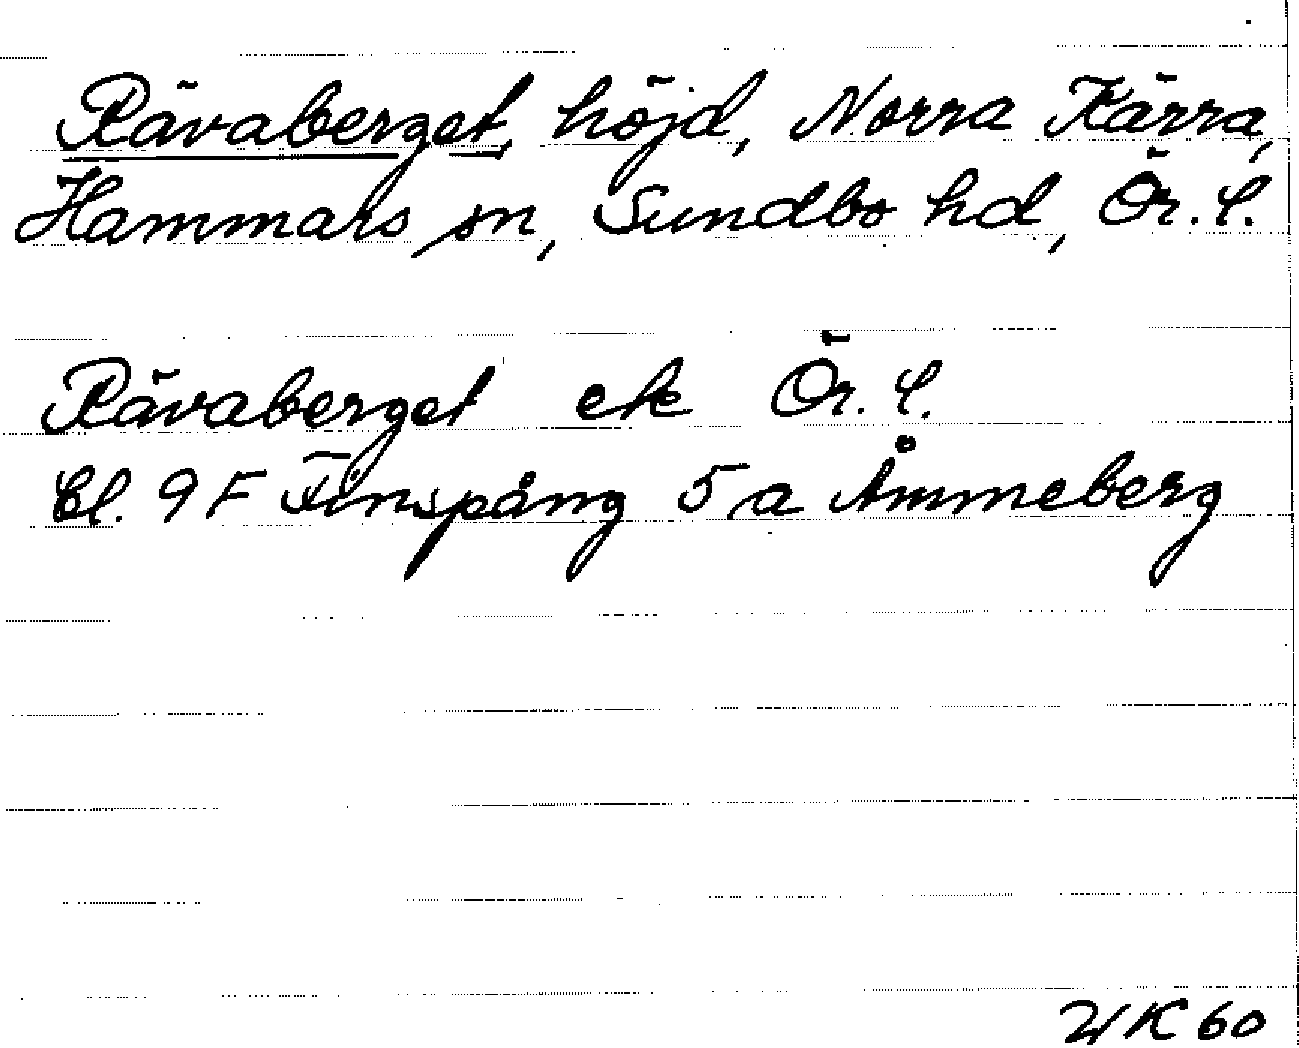 Rävaberget, höjd, Norra Kärra,
Hammars sn, Sundbo hd, Ör. l.
Rävaberget ek Ör. l.
Bl. 9F Finspång 5 a Åmmeberg
60